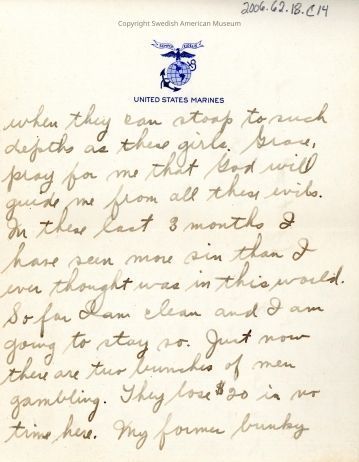 2006.62.18.C14
Copyright Swedish American Museum
UNITED STATES MARINES
when they can stoop to such
depths as these girls. Grace,
pray for me that God will
guide me from all these evils.
In these last 3 months I
have seen more sin than I
ever thought was in this world.
So far I am clean and I am
going to stay so. Just now
there are two bunches of men
gambling. They lose $20 in no
time here. My former bunky